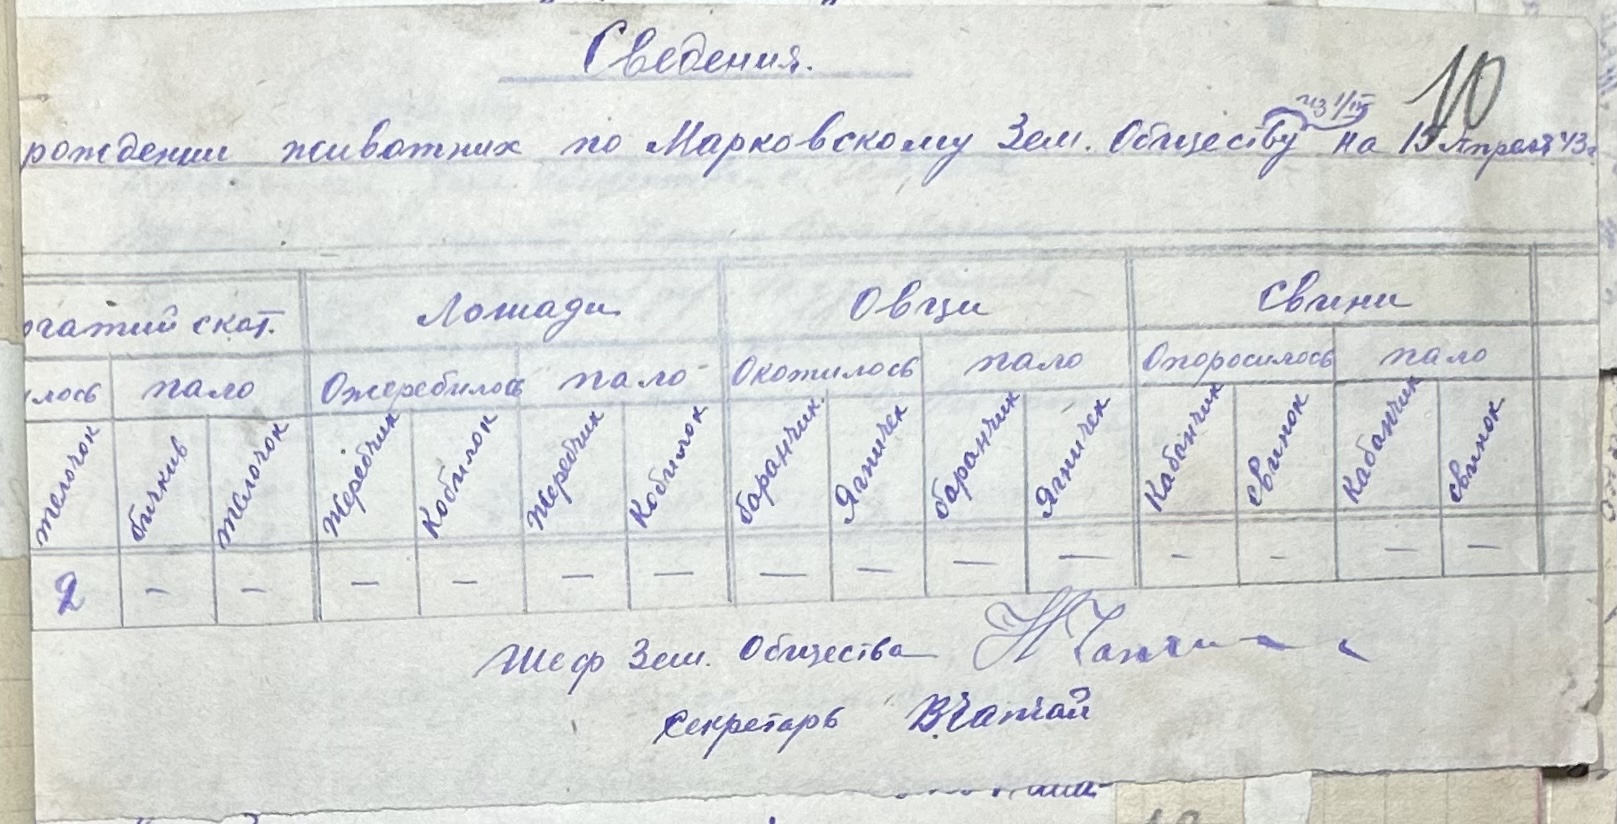 Сведения.
10
из 1/III
рождении животних по Марковскому Зем. Обществу на 15 Апреля 43г
огатий скот. Лошади Овци Свини
илось пало Ожеребилось пало Окотилось пало Опоросилось пало
телочок бичків телочок Жеребчик Кобилок Жеребчик Кобилок баранчик. Ягничек баранчик Ягничек Кабанчик свинок Кабанчик свинок
2 – – – – – – – – – – – – – –
Шеф Зем. Общества
Секретарь ВЧапай